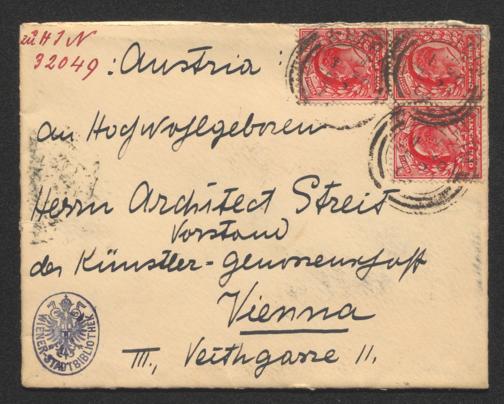 zu H I N
32049
: Austria :
An Hochwohlgeboren
Herrn Architect Streit
Vorstand
der Künstler-Genossenschaft
Vienna
III., Veithgasse 11.
WIENER STADTBIBLIOTHEK
ONE PENNY